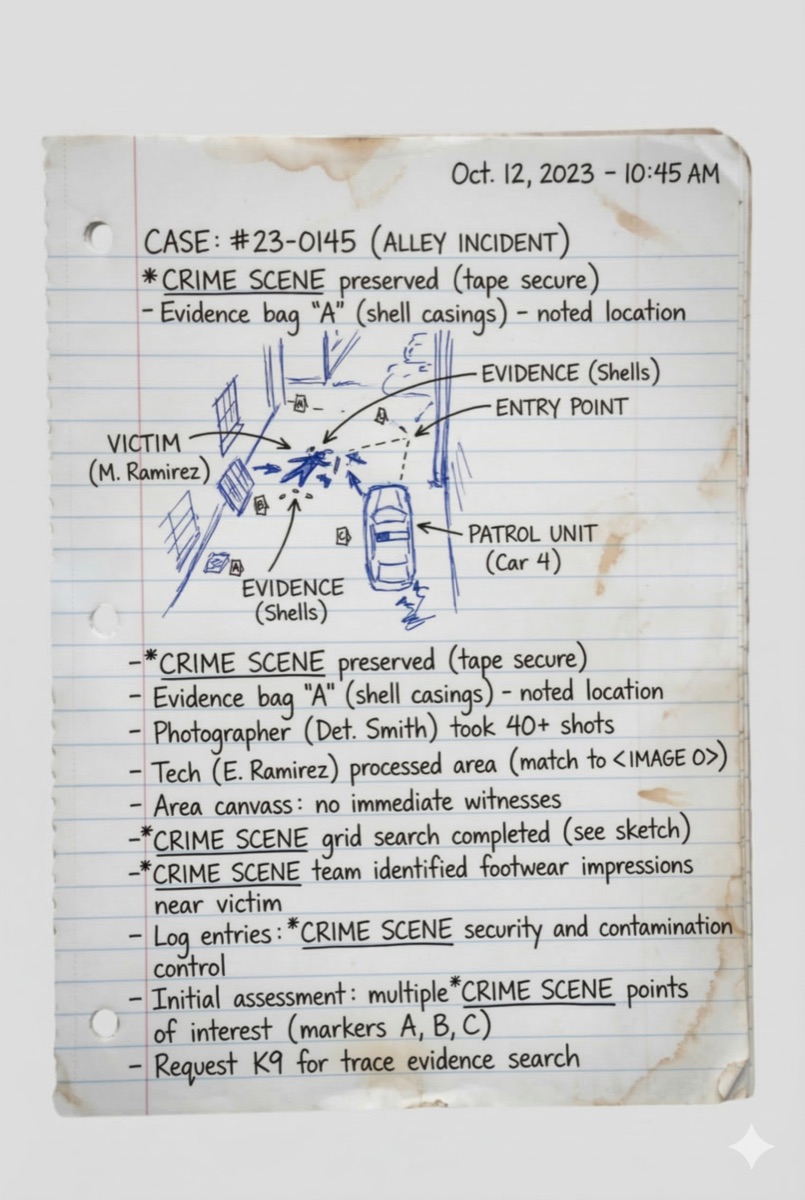 Oct. 12, 2023 - 10:45 AM
CASE: #23-0145 (ALLEY INCIDENT)
*CRIME SCENE preserved (tape secure)
- Evidence bag "A" (shell casings) - noted location
EVIDENCE (Shells)
ENTRY POINT
VICTIM
(M. Ramirez)
A
B
C
A
PATROL UNIT
(Car 4)
EVIDENCE
(Shells)
-*CRIME SCENE preserved (tape secure)
- Evidence bag "A" (shell casings) - noted location
- Photographer (Det. Smith) took 40+ shots
- Tech (E. Ramirez) processed area (match to <IMAGE 0>)
- Area canvass: no immediate witnesses
-*CRIME SCENE grid search completed (see sketch)
-*CRIME SCENE team identified footwear impressions
near victim
- Log entries: *CRIME SCENE security and contamination
control
- Initial assessment: multiple *CRIME SCENE points
of interest (markers A, B, C)
- Request K9 for trace evidence search